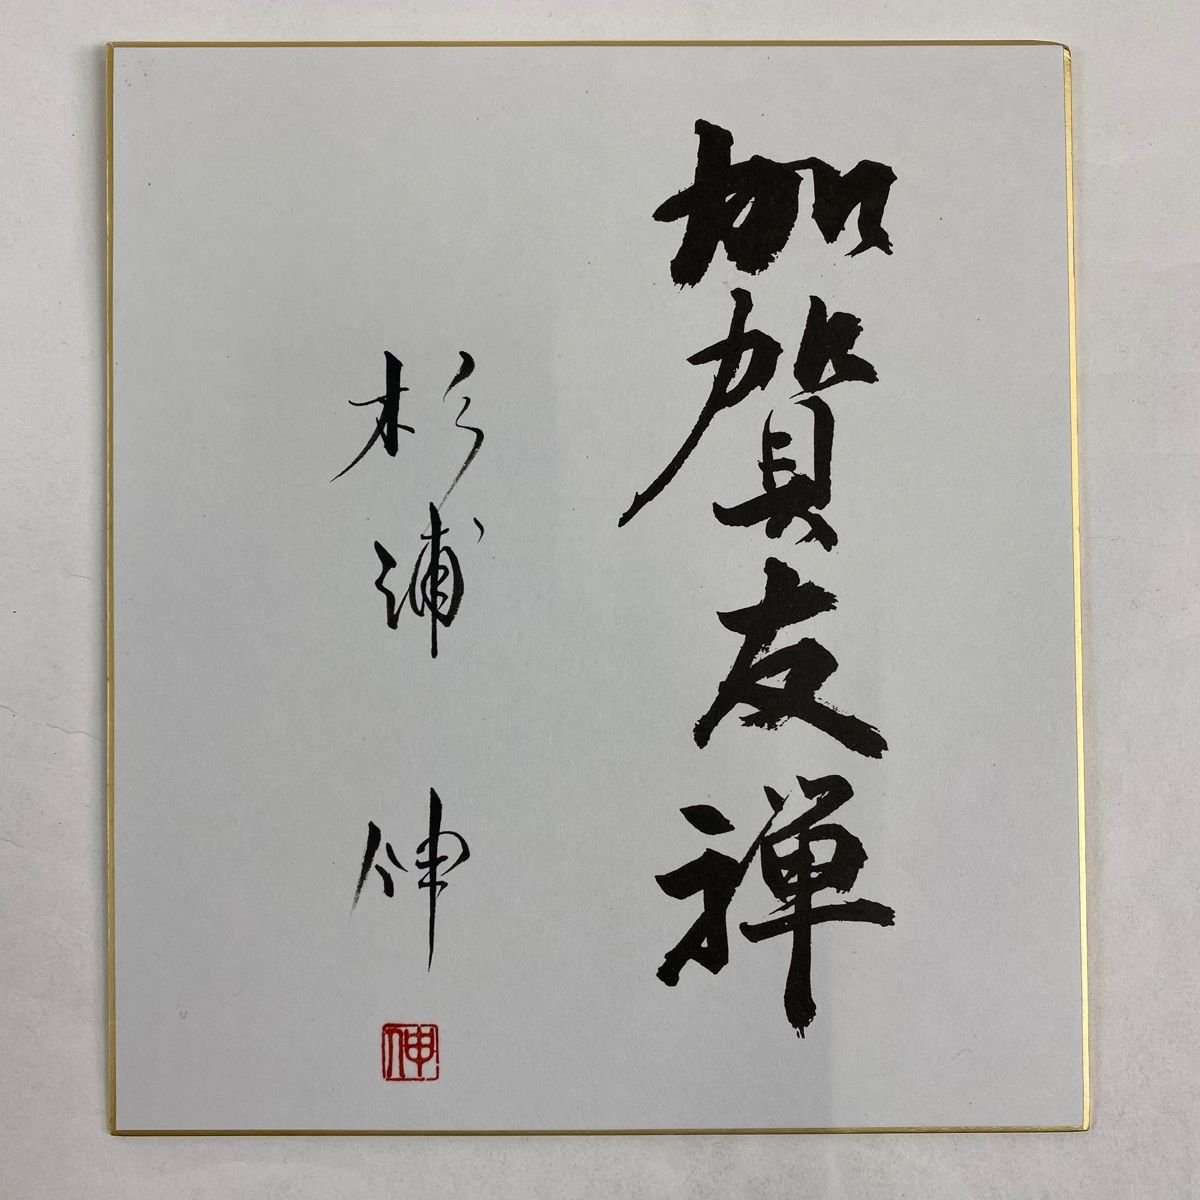 加賀友禅
杉浦伸
伸